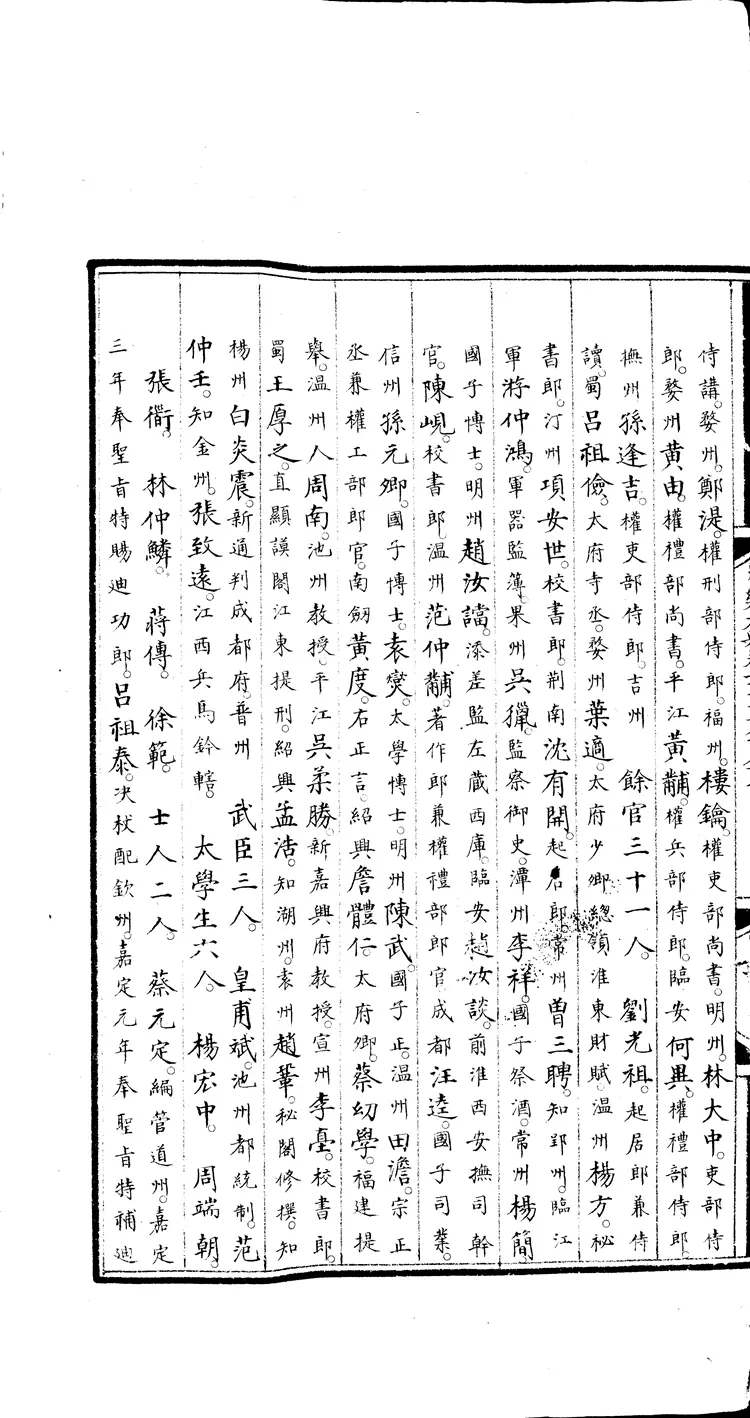 侍講。婺州。鄭湜。權刑部侍郎。福州。樓鑰。權吏部尚書。明州。林大中。吏部侍
郎。婺州黃由。權禮部尚書。平江黃黼。權兵部侍郎。臨安何異。權禮部侍郎。
撫州孫逢吉。權吏部侍郎吉州　餘官三十一人。劉光祖。起居郎兼侍
讀。蜀呂祖儉。太府寺丞。婺州葉適。太府少卿總領淮東財賦。溫州楊方。秘
書郎。汀州項安世。校書郎。荆南沈有開。起居郎。常州曾三聘。知郢州。臨江
軍游仲鴻。軍器監簿。果州吳獵。監察御史。潭州李祥。國子祭酒。常州楊簡
國子博士。明州趙汝讜。添差監左藏西庫。臨安趙汝談。前淮西安撫司幹
官。陳峴。校書郎溫州范仲黼。著作郎兼權禮部郎官成都汪逵。國子司業。
信州孫元卿。國子博士。袁燮。太學博士。明州陳武。國子正。溫州田澹。宗正
丞兼權工部郎官。南劒黃度。右正言。紹興詹體仁。太府卿。蔡幼學。福建提
舉。溫州人周南。池州教授。平江吳柔勝。新嘉興府教授。宣州李𡌴。校書郎。
蜀王厚之。直顯謨閣江東提刑。紹興孟浩。知湖州。袁州趙鞏。秘閣修撰。知
楊州白炎震。新通判成都府。普州　武臣三人。皇甫斌。池州都統制。范
仲壬。知金州。張致遠。江西兵馬鈐轄。　太學生六人。　楊宏中。　周端朝。
張衜。　林仲麟。　蔣傅。　徐範。　士人二人。　蔡元定。編管道州。嘉定
三年奉聖旨特賜迪功郎。呂祖泰。決杖配欽州。嘉定元年奉聖旨特補迪